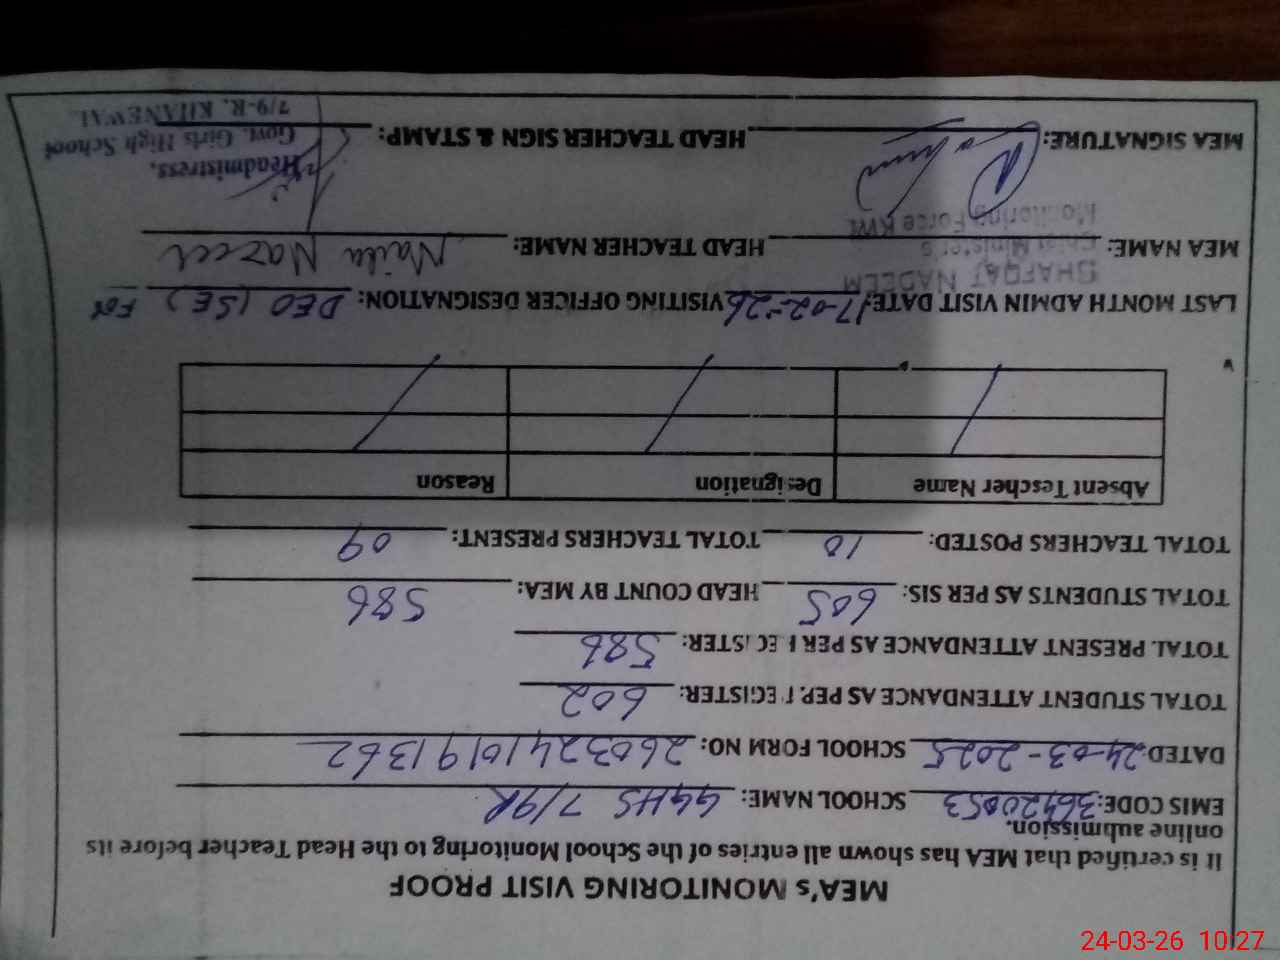 MEA's MONITORING VISIT PROOF
It is certified that MEA has shown all entries of the School Monitoring to the Head Teacher before its
online submission.
EMIS CODE: 36420053 SCHOOL NAME: GGHS 7/9R
DATED: 24-03-2025 SCHOOL FORM NO: 260324101913 62
TOTAL STUDENT ATTENDANCE AS PER REGISTER: 602
TOTAL PRESENT ATTENDANCE AS PER REGISTER: 586
TOTAL STUDENTS AS PER SIS: 605 HEAD COUNT BY MEA: 586
TOTAL TEACHERS POSTED: 10 TOTAL TEACHERS PRESENT: 09
Absent Teacher Name Designation Reason
LAST MONTH ADMIN VISIT DATE: 17-02-26 VISITING OFFICER DESIGNATION: DEO (SE)
SHAFQAT NADEEM
Chief Minister's
Monitoring Force KWL
MEA NAME: HEAD TEACHER NAME: Naila Nazeer
MEA SIGNATURE: HEAD TEACHER SIGN & STAMP:
Headmistress,
Govt. Girls High School
7/9-R, KHANEWAL
24-03-26 10:27